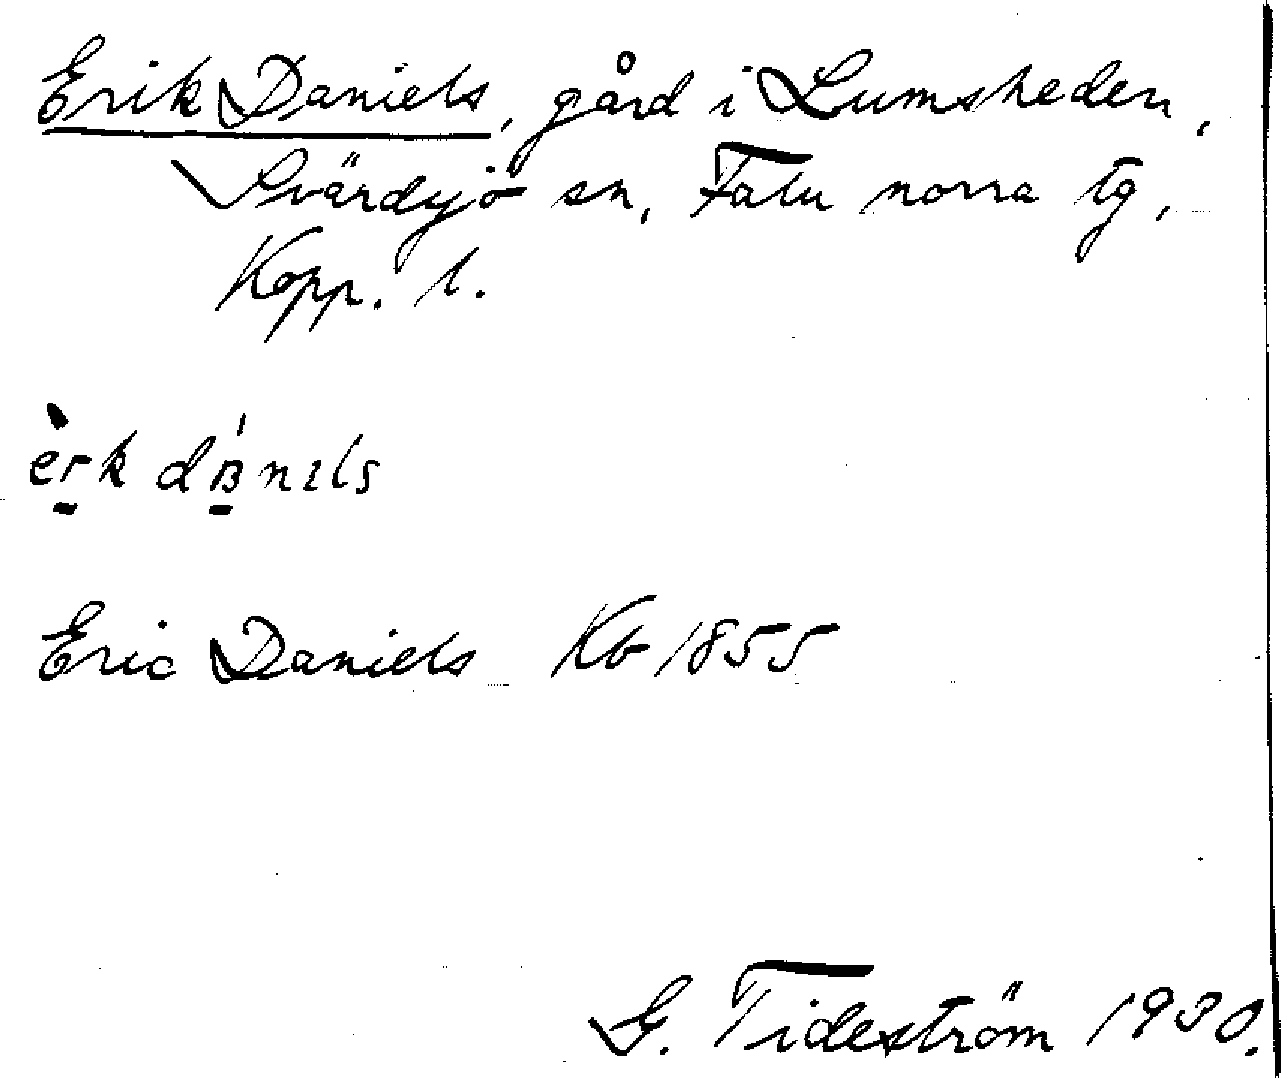 Erik Daniels, gård i Lumsheden,
Svärdsjö sn, Falu norra tg,
Kopp. l.
Eric Daniels Kb 1855
G. Tideström 1930.